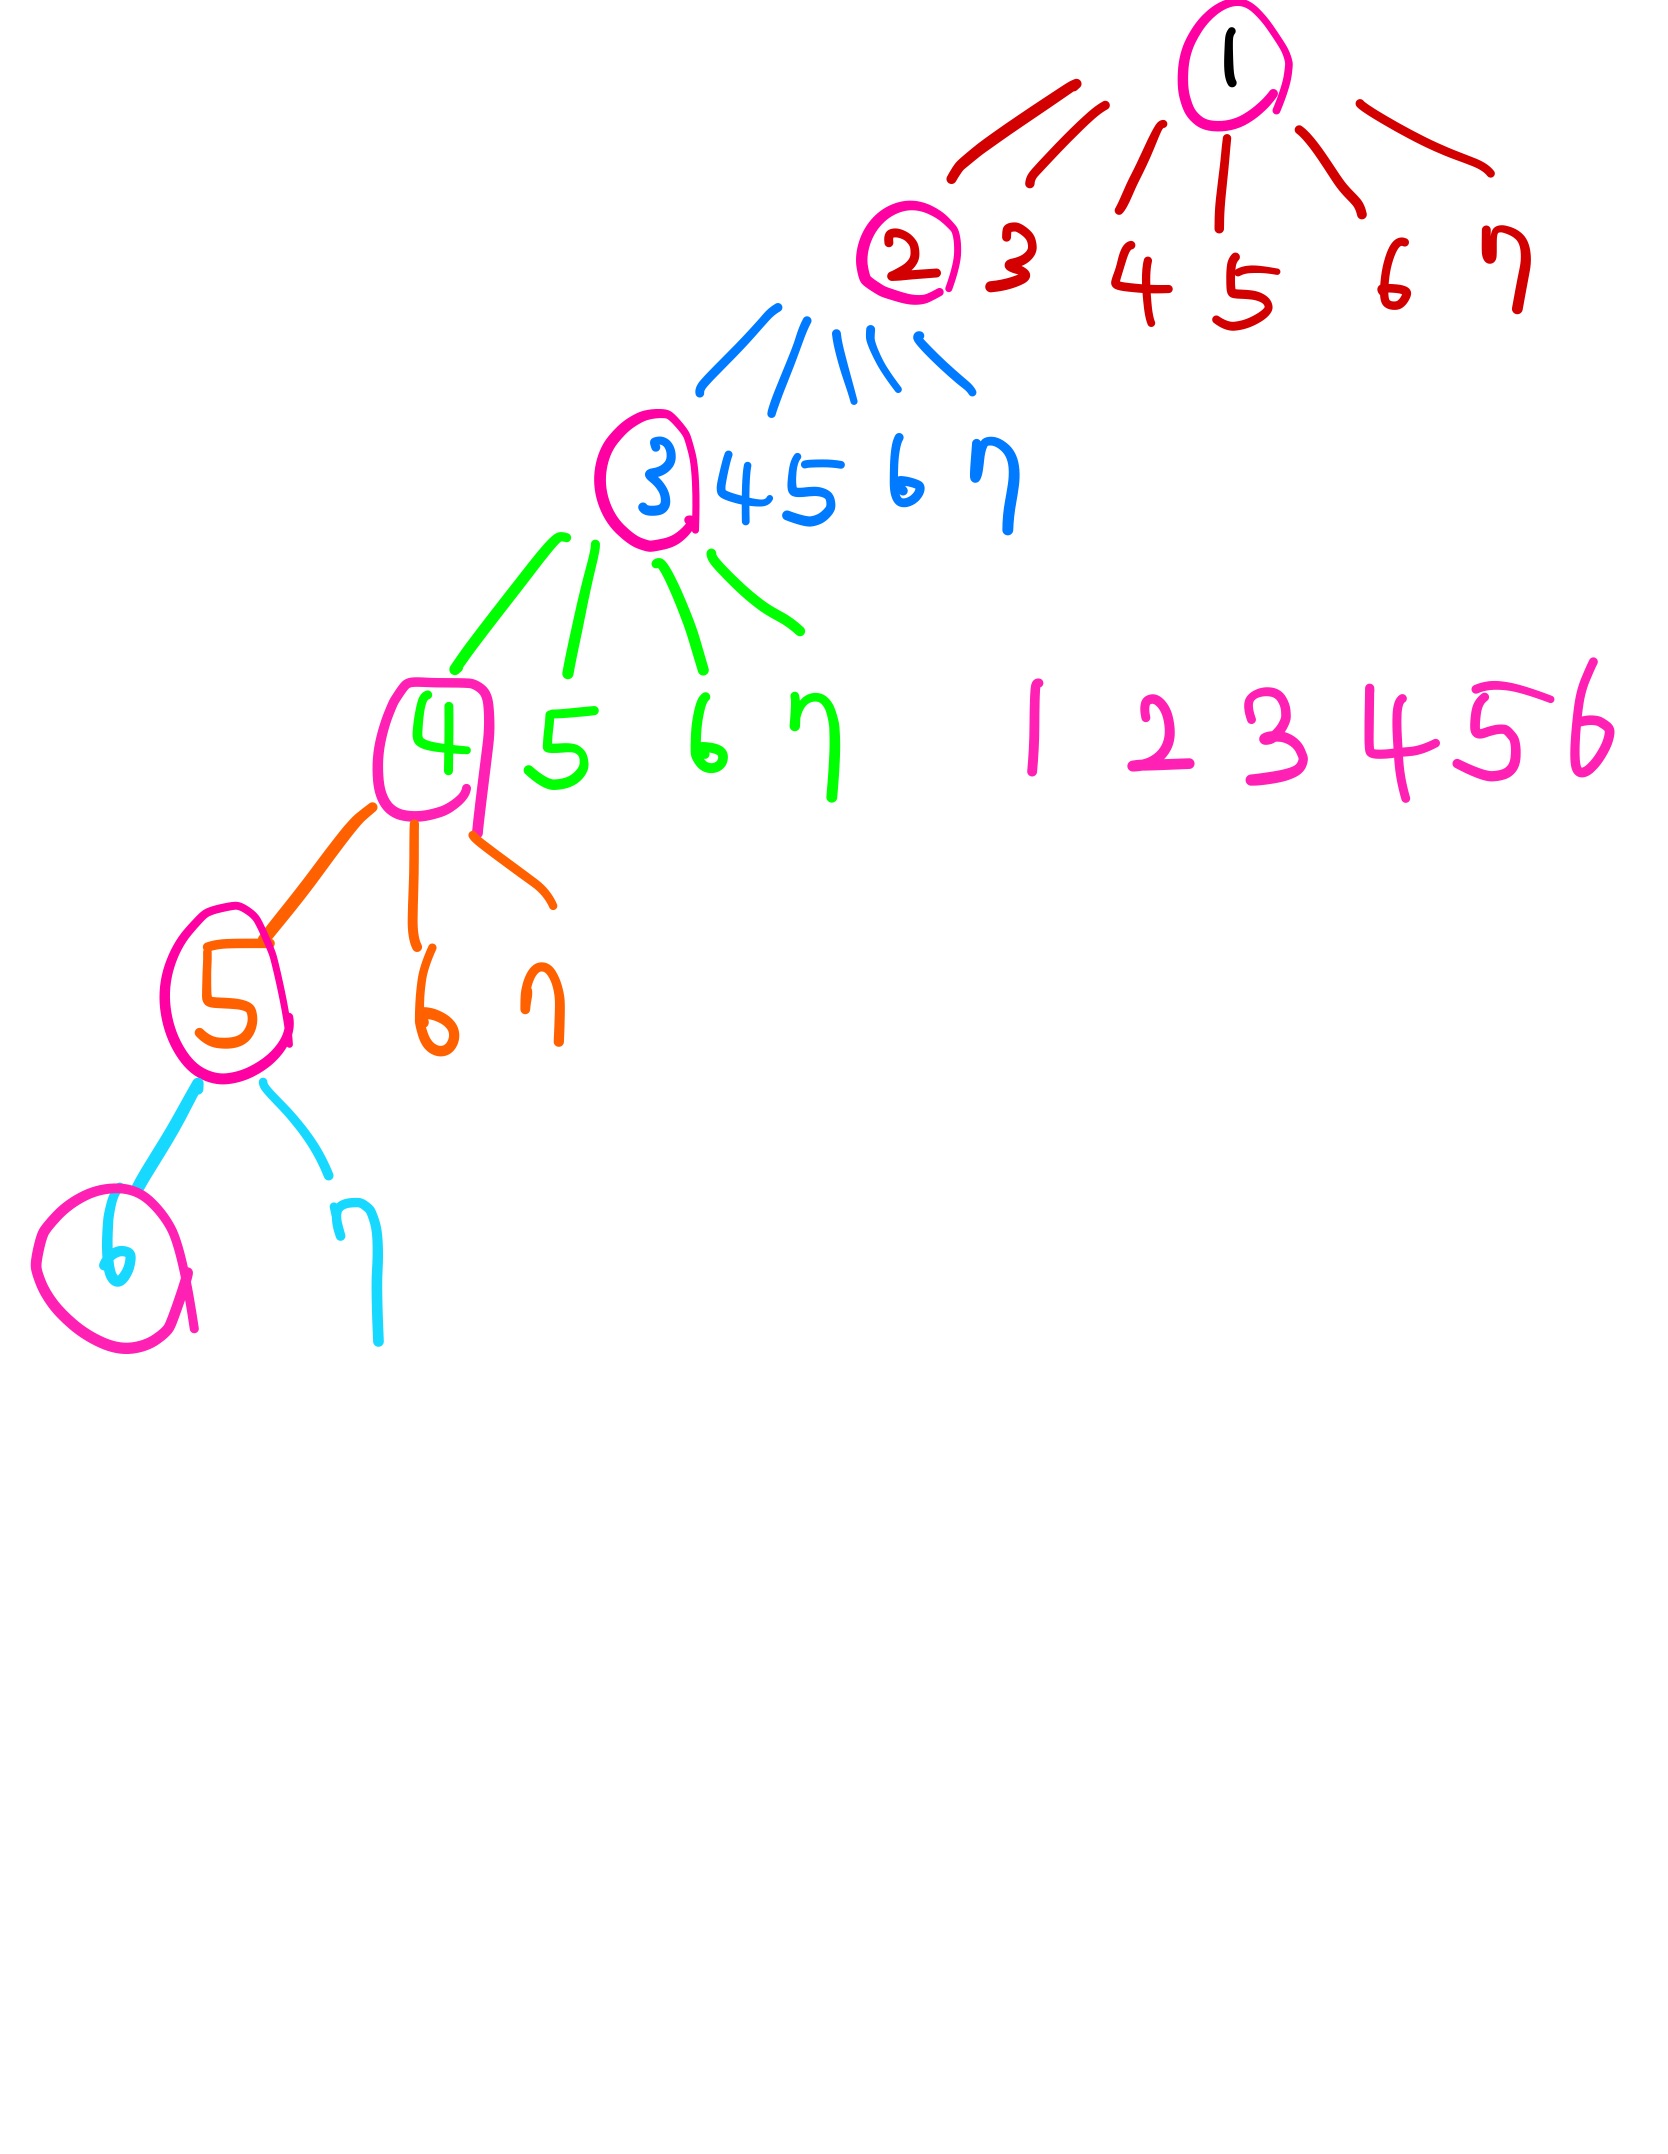 1
2 3 4 5 6 7
3 4 5 6 7
4 5 6 7
1 2 3 4 5 6
5 6 7
6 7